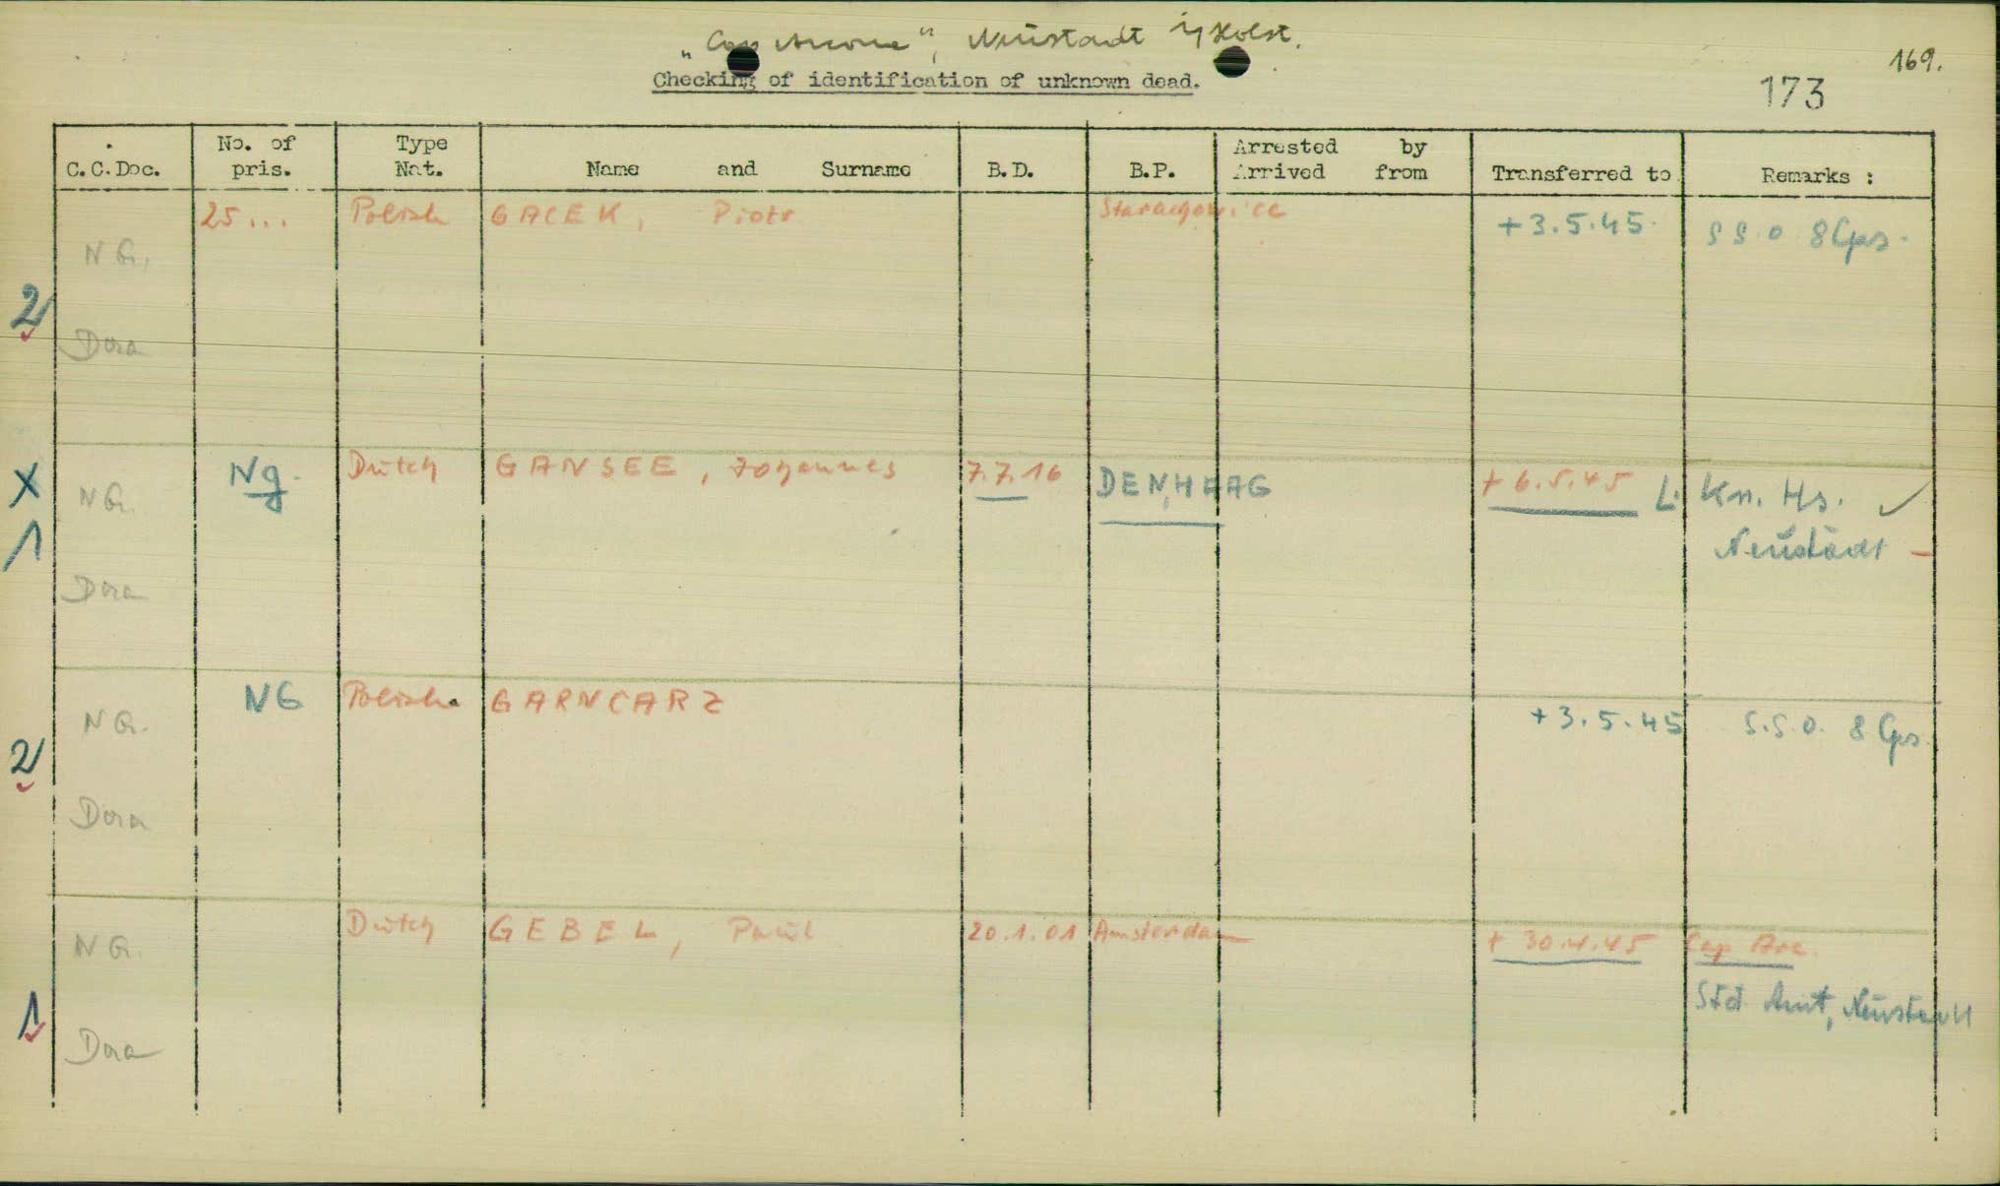 „Cap Arcona", Neustadt i/Holst.
169.
Checking of identification of unknown dead.
173
C.C.Doc. No. of pris. Type Nat. Name and Surname B.D. B.P. Arrested by Arrived from Transferred to Remarks :
25... Polish GACEK, Piotr Starachowice +3.5.45. S S O 8 Cps.
NG.
2
Dora
X Ng. Dutch GANSEE, Johannes 7.7.16 DEN HAAG + 6.5.45 L. Kn. Hs. ✓
NG.
1 Neustadt –
Dora
NG Polish GARNCARZ +3.5.45 S.S.O. 8 Cps.
NG.
2
Dora
Dutch GEBEL, Paul 20.1.01 Amsterdam + 30.4.45 Cap Arc.
NG.
1 Std. Amt, Neustadt
Dora